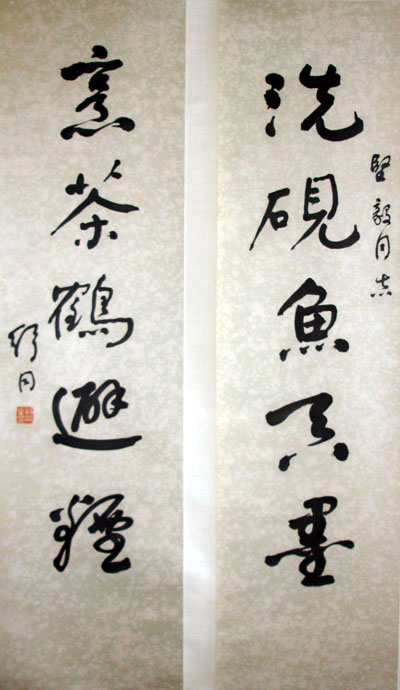 堅毅同志
洗硯魚吞墨
烹茶鶴避煙
舒同